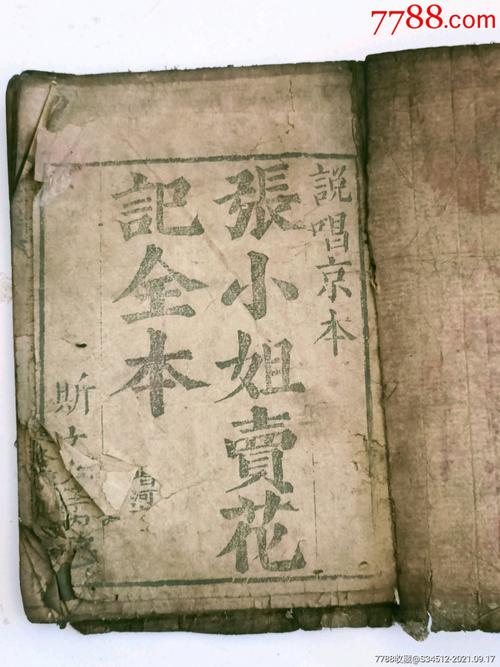 7788.com
說唱京本
張小姐賣花
記全本
7788收藏@S34512-2021.09.17